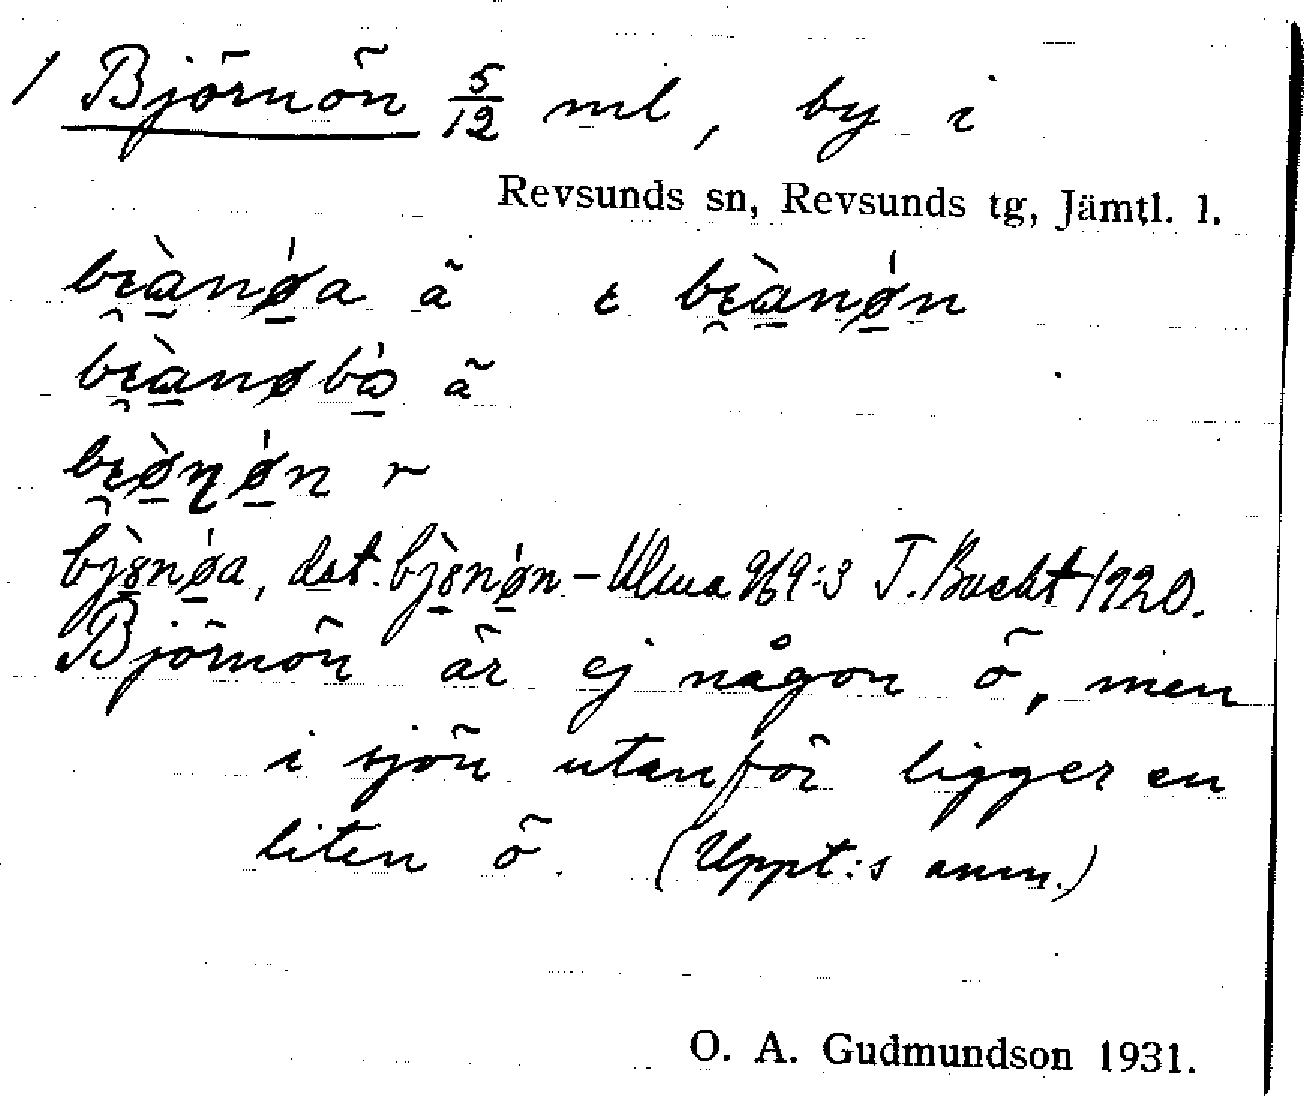 1 Björnön 5/12 ml, by i
Revsunds sn, Revsunds tg, Jämtl. l.
bɩ̯àn̠ǿa ã ɩ bɩ̯ànǿn
bɩ̯ànøbɷ̀ ã
bɩ̯ø̀ɳǿn r
bjònǿa, dat. bjònǿn - Ulma 969:3 T. Bucht 1920.
Björnön är ej någon ö, men
i sjön utanför ligger en
liten ö. (Uppt:s anm.)
O. A. Gudmundson 1931.